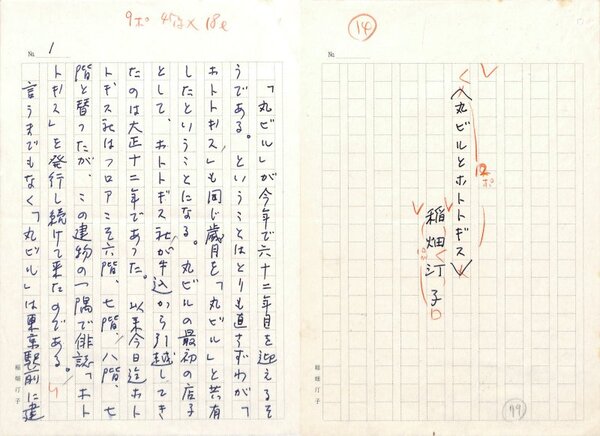 14
No.
〈丸ビルとホトトギス〉
12ポ
稲畑汀子
79
稲畑汀子
9ポ 45字×18l
No. 1
「丸ビル」が今年で六十二年目を迎えるそ
うである。ということはとりも直さずわが「
ホトトギス」も同じ歳月を「丸ビル」と共有
したということになる。丸ビルの最初の店子
として、ホトトギス社が牛込から引越してき
たのは大正十二年であった。以来今日迄ホト
トギス社はフロアこそ六階、七階、八階、七
階と替ったが、この建物の一隅で俳誌「ホト
トギス」を発行し続けて来たのである。
言うまでもなく「丸ビル」は東京駅前に建
稲畑汀子